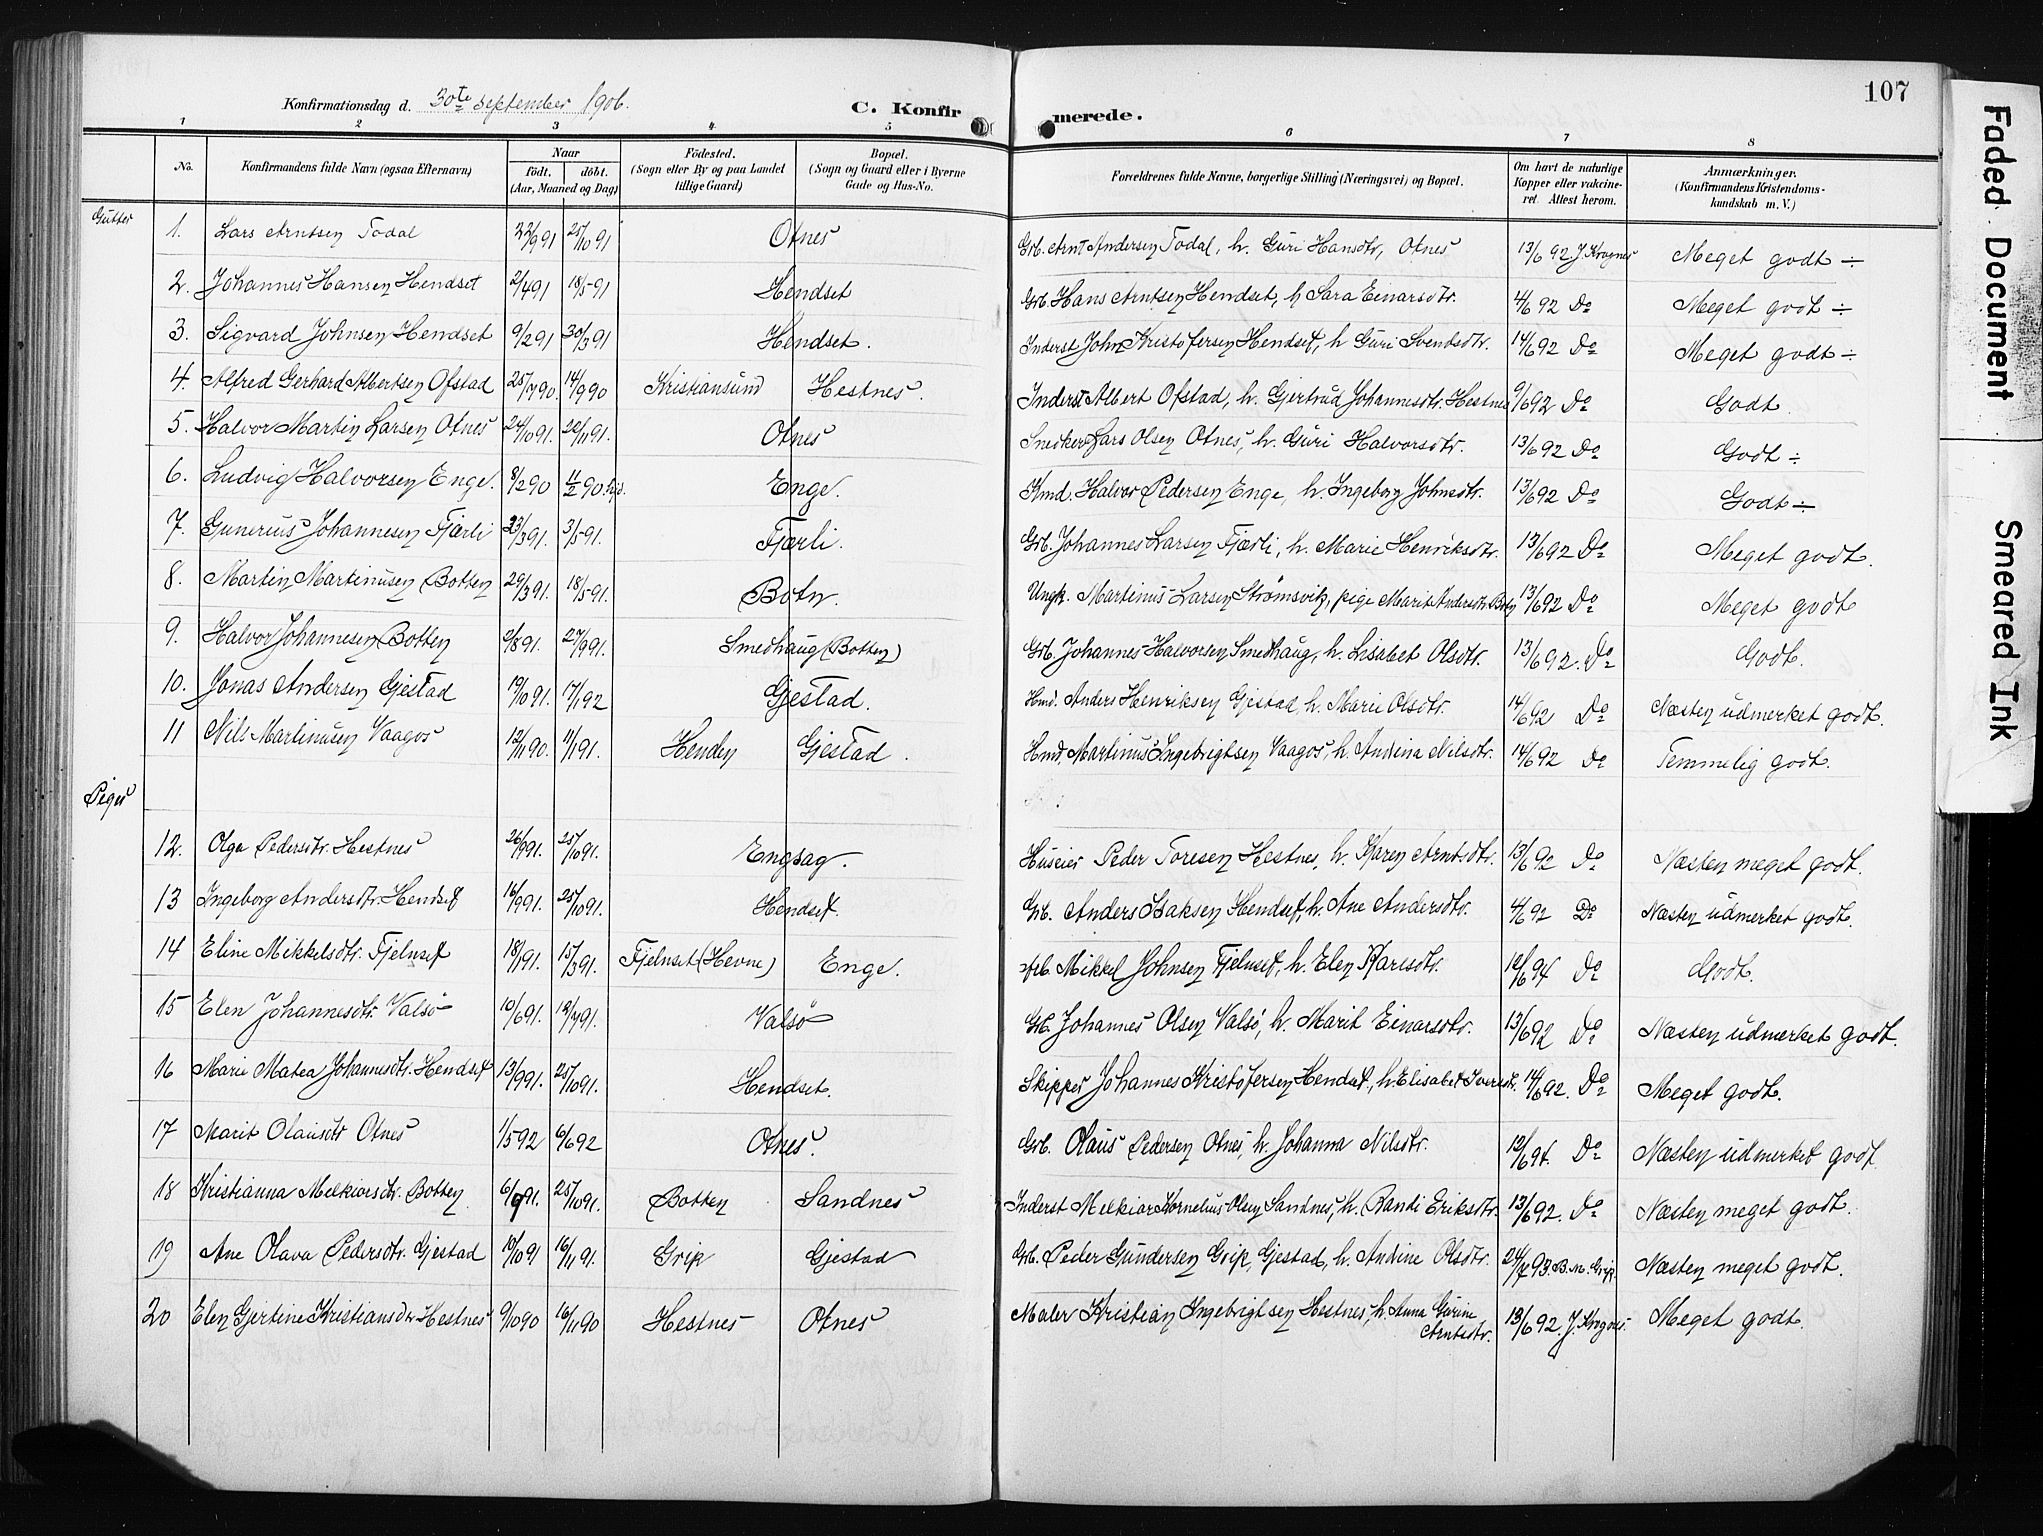 107
Konfirmationsdag d. 30te september 1906. C. Konfirmerede.
1 2 3 4 5 6 7 8
No. Konfirmandens fulde Navn (ogsaa Efternavn) Naar født. døbt. (Aar, Maaned og Dag) Fødested. (Sogn eller By og paa Landet tillige Gaard) Bopæl. (Sogn og Gaard eller i Byerne Gade og Hus-No. Forældrenes fulde Navne, borgerlige Stilling (Næringsvei) og Bopæl. Om havt de naturlige Kopper eller vakcineret. Attest herom. Anmærkninger. (Konfirmandens Kristendomskundskab m. V.)
Gutter
1. Lars Arntsen Todal 22/9 91 25/10 91 Otnes Grb. Arnt Andersen Todal, h. Guri Hansdtr, Otnes 13/6 92 J. Krognes Meget godt ÷
2. Johannes Hansen Hendset 2/4 91 18/5 91 Hendset Grb. Hans Arntsen Hendset, h Sara Einarsdtr. 4/6 92 Do Meget godt ÷
3. Sigvard Johnsen Hendset 9/2 91 30/3 91 Hendset. Inderst John Kristofersen Hendset, h Guri Svendsdtr. 14/6 92 Do Meget godt ÷
4. Alfred Gerhard Albertsen Ofstad 25/7 90. 14/9 90 Kristiansund Hestnes. Inderst Albert Ofstad, h. Gjertrud Johannesdtr. Hestnes 9/6 92 Do Godt.
5. Halvor Martin Larsen Otnes 24/10 91. 22/11 91. Otnes Snedker Lars Olsen Otnes, h. Guri Halvorsdtr. 13/6 92 Do Godt ÷
6. Ludvig Halvorsen Enge. 8/2 90 11/2 90 Enge. Kmd. Halvor Pedersen Enge, h. Ingeborg Johnsdtr. 13/6 92 Do Godt ÷
7. Gunerius Johannesen Fjærli 23/3 91. 3/5 91. Fjærli. Grb. Johannes Larsen Fjærli, h. Marie Henriksdtr. 13/6 92 Do Meget godt.
8. Martin Martinusen Botten 29/3 91. 18/5 91. Botn. Ungk. Martinus Larsen Strømsvik, pige Marit Andersdtr Botn 13/6 92 Do Meget godt
9. Halvor Johannesen Botten 2/8 91. 27/9 91. Smedhaug (Botten) Grb. Johannes Halvorsen Smedhaug, h. Lisabet Olsdtr. 13/6 92. Do Godt.
10. Jonas Andersen Gjestad 19/10 91. 17/1 92 Gjestad. Hmd. Anders Henriksen Gjestad, h. Marie Olsdtr. 14/6 92 Do Næsten udmerket godt.
11 Nils Martinusen Vaagos 12/11 90. 11/1 91. Henden Gjestad. Hmd. Martinus Ingebrigtsen Vaagos, h. Andina Nilsdtr. 14/6 92 Do Temmelig godt.
Piger
12. Olga Pedersdtr. Hestnes 26/9 91. 25/10 91. Engsag. Huseier Peder Toresen Hestnes, h. Karen Arntsdtr. 13/6 92 Do Næsten meget godt.
13 Ingeborg Andersdtr. Hendset 16/9 91. 25/10 91. Hendset. Grb. Anders Isaksen Hendset, h. Ane Andersdtr. 4/6 92 Do Næsten udmerket godt.
14 Eline Mikkelsdtr. Fjelnset 18/1 91. 15/3 91. Fjelnset (Hevne) Enge. Mikkel Johnsen Fjelnset, h. Elen Larsdtr. 12/6 94 Do Godt.
15 Elen Johannesdtr. Valsø 10/6 91. 12/7 91. Valsø Grb. Johannes Olsen Valsø, h. Marit Einarsdtr. 13/6 92 Do Næsten udmerket godt.
16 Marie Matea Johannesdtr. Hendset 13/9 91. 25/10 91. Hendset. Skipper Johannes Kristofersen Hendset, h Elisabet Iversdtr. 14/6 92. Do Meget godt.
17 Marit Olausdtr Otnes 1/5 92 6/6 92 Otnes. Grb. Olaus Pedersen Otnes, h. Johanna Nilsdtr. 12/6 94. Do Næsten udmerket godt
18 Kristianna Melkiorsdtr. Botten 6/9 91. 25/10 91. Botten Sandnes Inderst Melkior Kornelius Olsen Sandnes, h. Randi Eriksdtr. 13/6 92. Do Næsten meget godt.
19 Ane Olava Pedersdtr. Gjestad 10/10 91 16/11 91. Grip Gjestad Grb. Peder Gundersen Grip, Gjestad, h. Andine Olsdtr. 24/7 93. B. M. Grip. Næsten meget godt.
20 Elen Gjertine Kristiansdtr Hestnes 9/10 90 16/11 90 Hestnes Otnes Maler Kristian Ingebrigtsen Hestnes, h. Anna Gurine Arntsdtr. 13/6 92. J. Krognes. Meget godt.
Faded Document
Smeared Ink